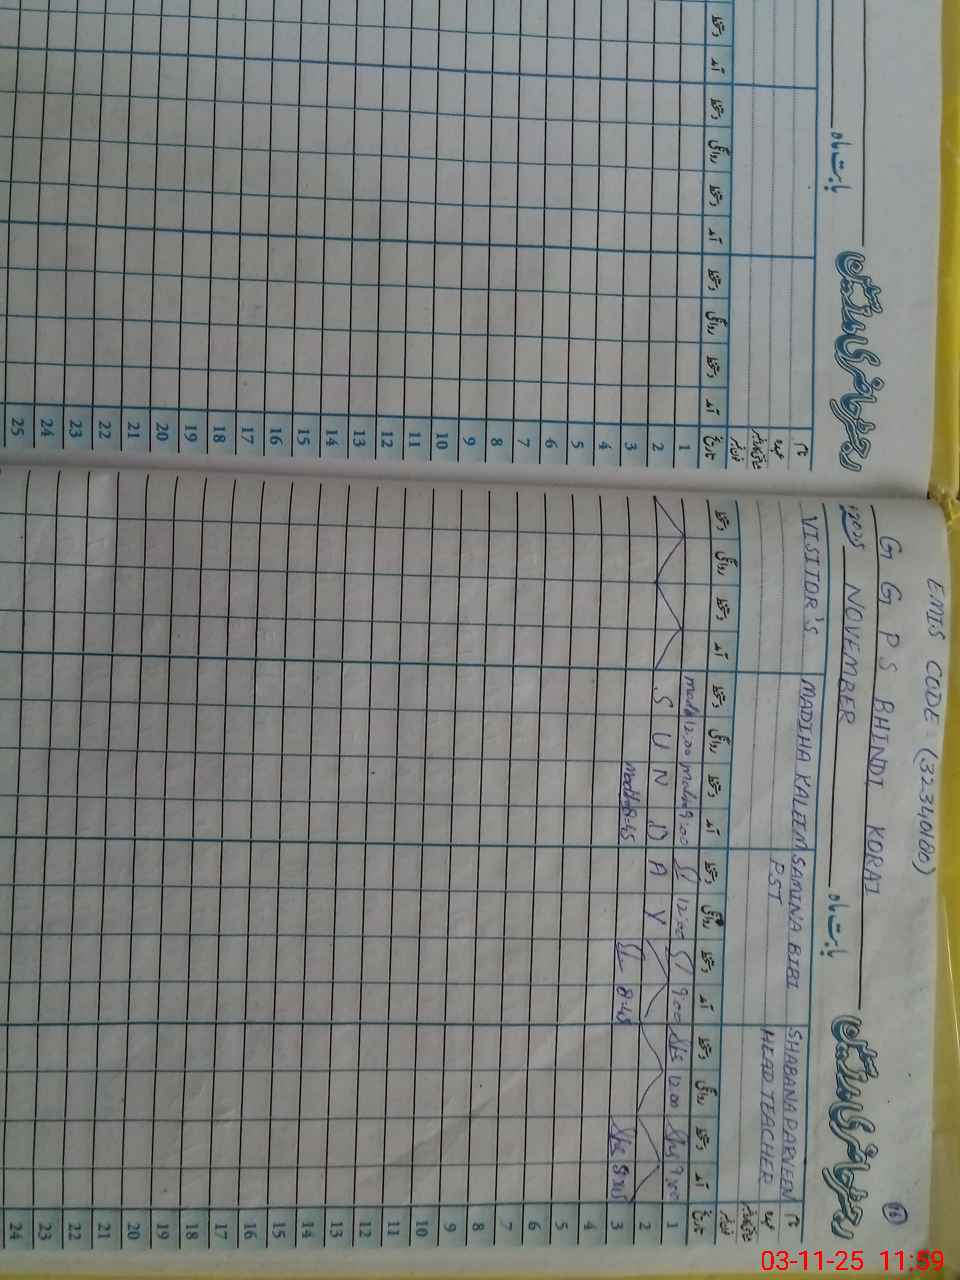 16
EMIS CODE = (32340180)
G G P S BHINDI KORAI
رجسٹر حاضری مدرسین
بابت ماہ NOVEMBER 2025
نام SHABANA PARVEEN SAMINA BIBI MADIHA KALEEM VISITOR'S
عہدہ HEAD TEACHER PST
تاریخ آمد دستخط روانگی دستخط آمد دستخط روانگی دستخط آمد دستخط روانگی دستخط آمد دستخط روانگی دستخط
1 9:00 12:00 9:00 12:00 9:00 12:00
2 S U N D A Y
3 8:45 8:45 8:45
4
5
6
7
8
9
10
11
12
13
14
15
16
17
18
19
20
21
22
23
24
رجسٹر حاضری مدرسین
بابت ماہ
نام
عہدہ
تاریخ آمد دستخط روانگی دستخط آمد دستخط روانگی دستخط آمد دستخط
1
2
3
4
5
6
7
8
9
10
11
12
13
14
15
16
17
18
19
20
21
22
23
24
25
03-11-25 11:59